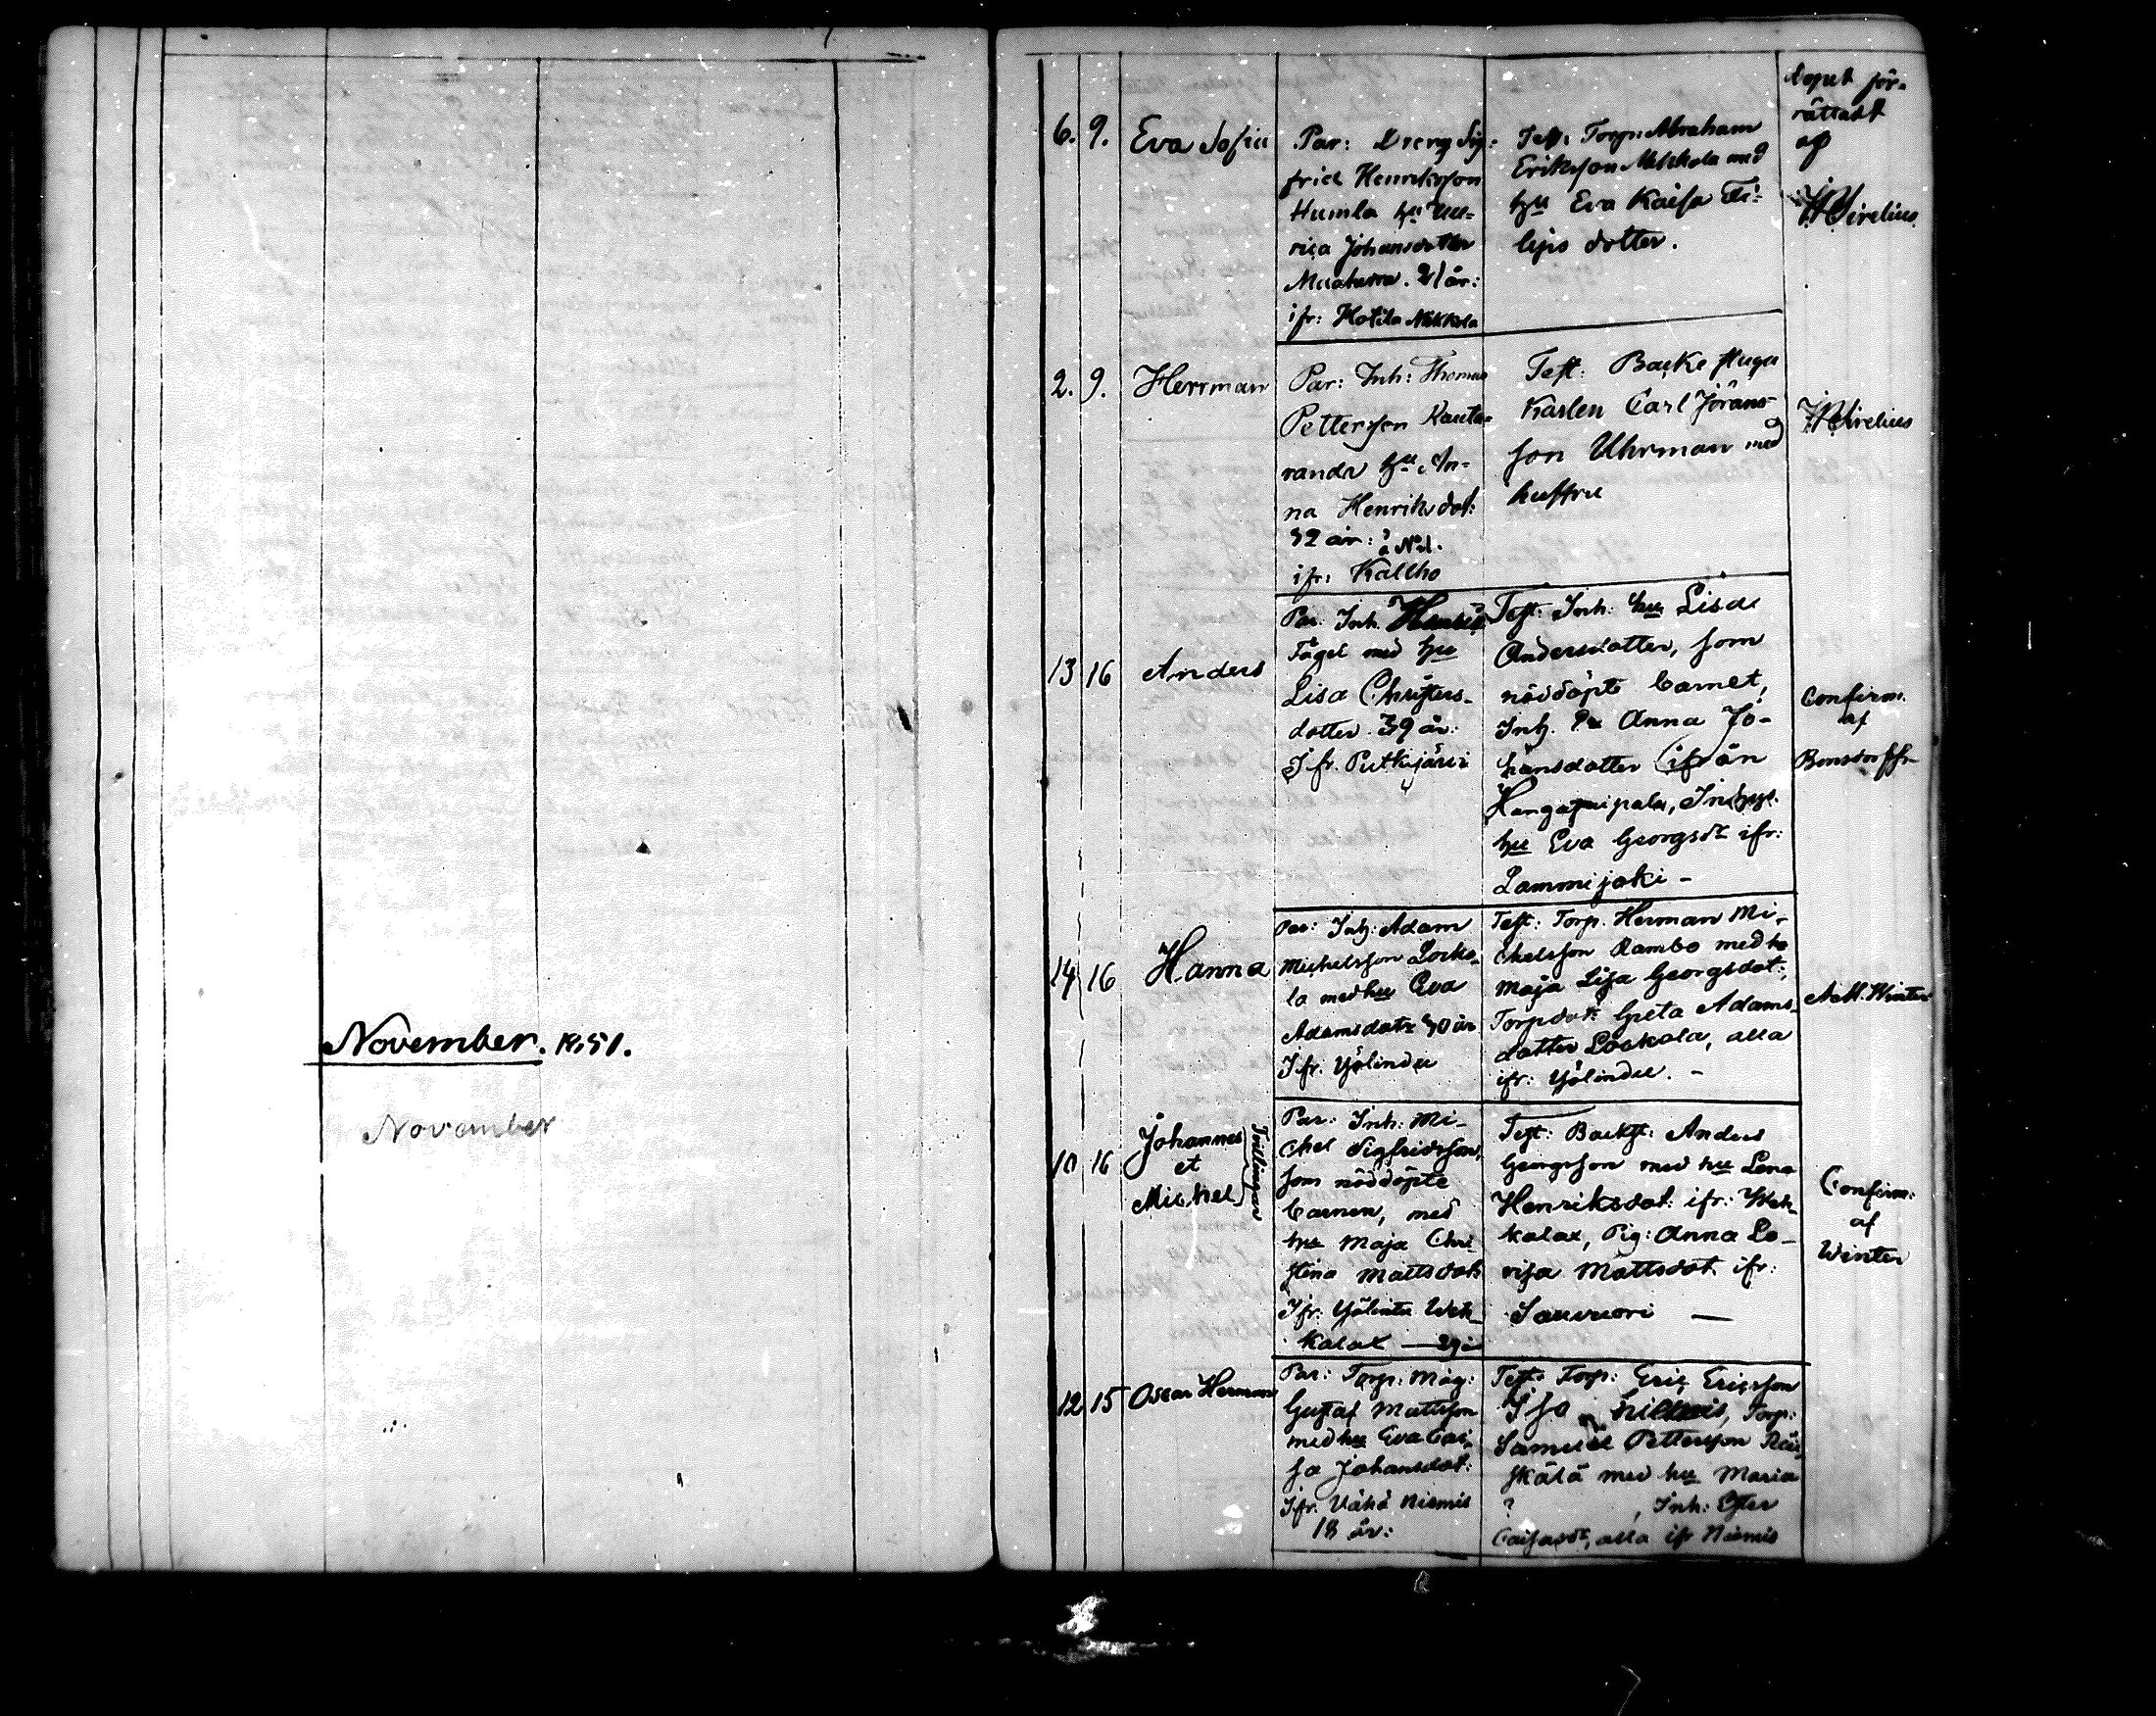 November. 1851.
November
Dopet för-
rättadt
af
6. 9. Eva Sofia
Par: Dreng Sig-
frid Henriksson
Humla hu Ul-
rica Johansdotter
21 år:
ifr: Hotila Mekkola
Test: Torp: Abraham
Eriksson Mekkola med
hu Eva Kaisa Fi-
lips dotter.
Sirelius.
2. 9. Herrman
Par: Inh: Thomas
Pettersson Kauta-
randa hu An-
na Henriksdot:
32 år: å N:l.
ifr: Kallho
Test: Backstugu
Karlen Carl Jörans-
son Uhrman med
hustru
Sirelius
13 16 Anders
Par: Inh.
Tågel med hu
Lisa Christers-
dotter 39 år:
Ifr. Putkijärvi
Test: Inh: hu Lisa
Andersdotter, som
nöddöpte barnet,
Inh. Anna Jo-
hansdotter ifrån
Inhys.
hu Eva Georgsdr ifr:
Lammijoki -
Confirm.
af
Bonsdorff
14 16 Hanna
Par: Inh: Adam
Michelsson Locko-
la med hu Eva
Adamsdotr 40 år
Ifr. Yölindu
Test: Torp. Herman Mi-
chelsson Rambo med hu
Maja Lisa Georgsdot:,
Torpdot: Greta Adams-
dotter Lockola, alla
ifr: Yölindu. -
A.M. Winter
10 16 Johannes
et
Michel
Tvillingar
Par: Inh: Mi-
chel Sigfridsson,
som nöddöpte
barnen, med
hu Maja Chri-
stina Mattsdot:
Ifr: Yölintu Weh-
kalax — 29 år
Test: Backst: Anders
Georgsson med hu Lena
Henriksdot: ifr: Weh-
kalax, Pig: Anna Lo-
visa Mattsdot. ifr:
Sauvuori —
Confirm:
af
Winter
12 15 Oscar Herman
Par: Torp: Måg:
Gustaf Mattsson
med hu Eva Cai-
sa Johansdot:
Ifr. Vähä Niemis
18 år:
Test: Torp: Eric Ericsson
Iso Niemis, Torp:
Samuel Pettersson Rää-
skälä med hu Maria
? , Inh: Ester
Caisasdr, alla ifr Niemis